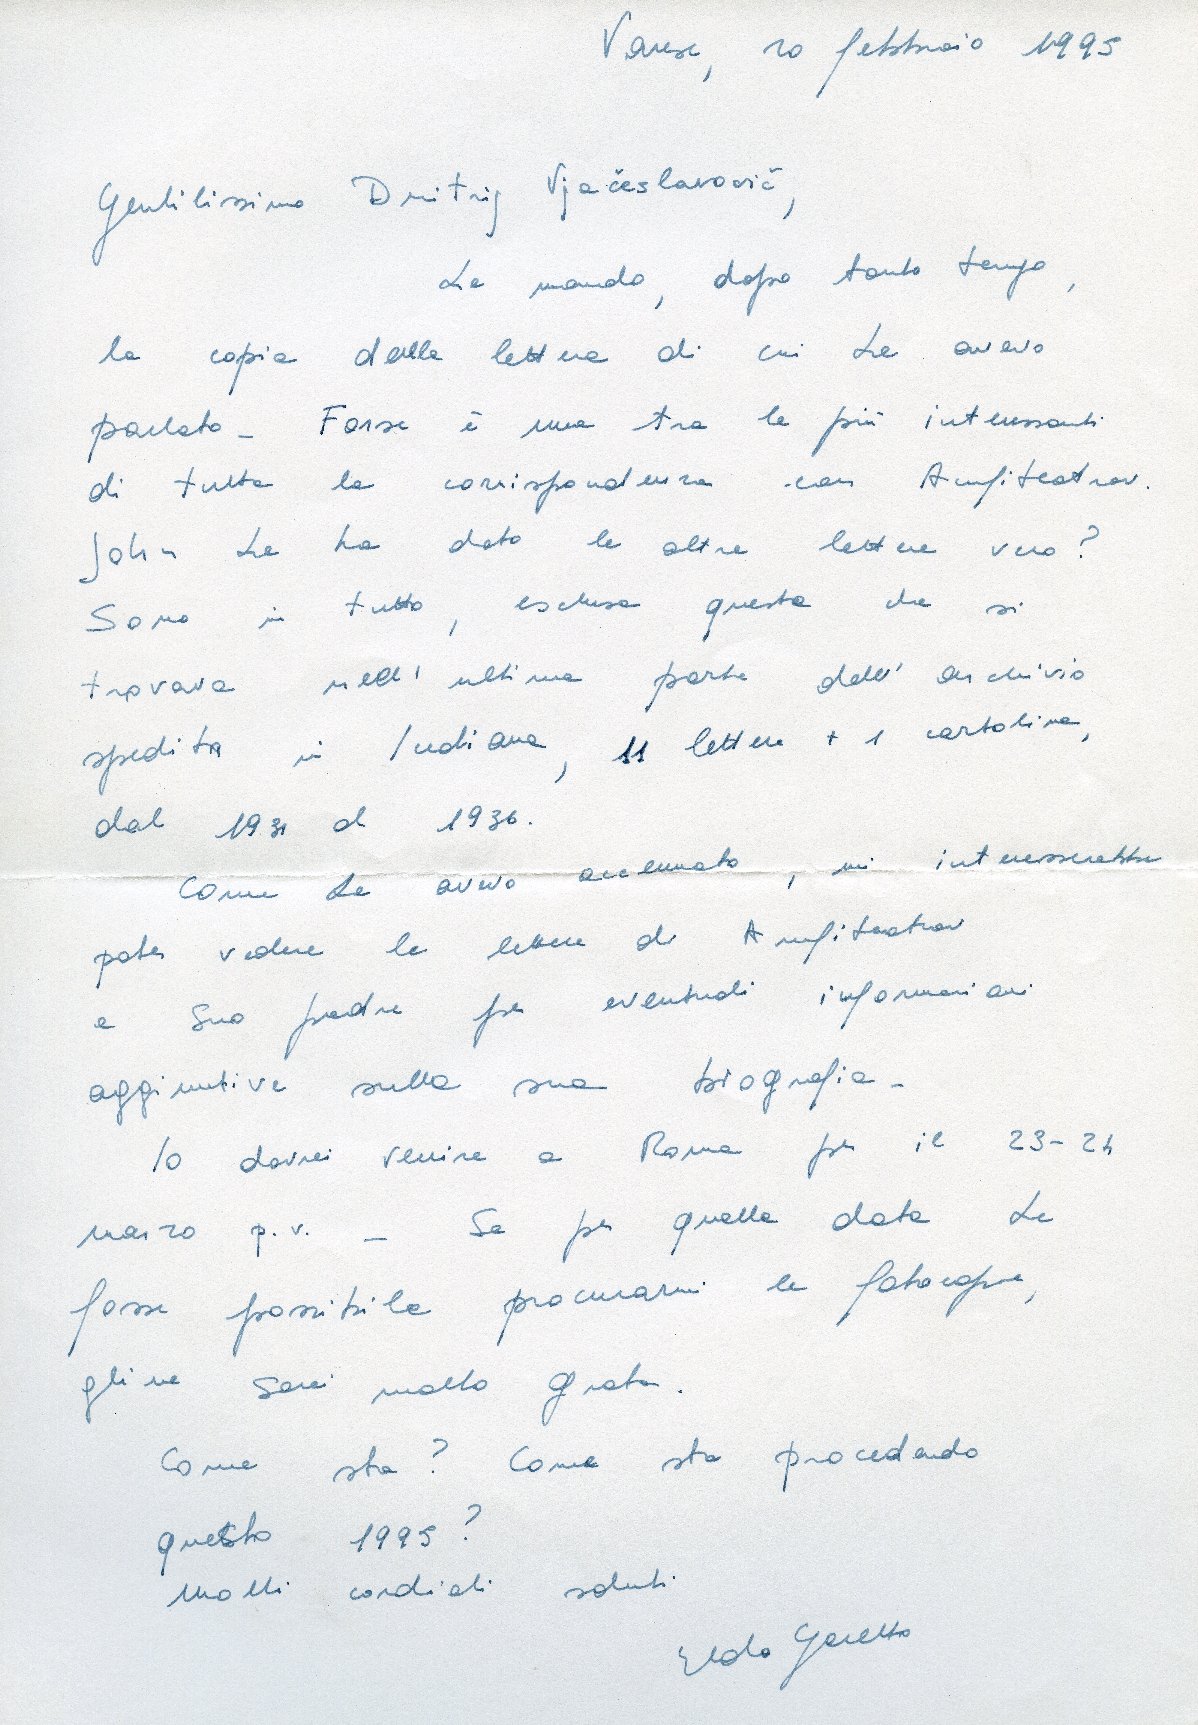 Varese, 20 febbraio 1995
Gentilissimo Dmitrij Vjačeslavovič,
Le mando, dopo tanto tempo,
la copia della lettera di cui Le avevo
parlato – Forse è una tra le più interessanti
di tutta la corrispondenza con Amfiteatrov.
John Le ha dato le altre lettere vero?
Sono in tutto, esclusa questa che si
trovava nell'ultima parte dell'archivio
spedita in Indiana, 11 lettere + 1 cartolina,
dal 1931 al 1936.
Come Le avevo accennato, mi interesserebbe
poter vedere le lettere di Amfiteatrov
a Suo padre per eventuali informazioni
aggiuntive sulla sua biografia –
Io dovrei venire a Roma per il 23-24
marzo p.v. – Se per quella data Le
fosse possibile procurarmi le fotocopie,
gliene sarei molto grata.
Come sta? Come sta procedendo
questo 1995?
Molti cordiali saluti
Elda Garetto